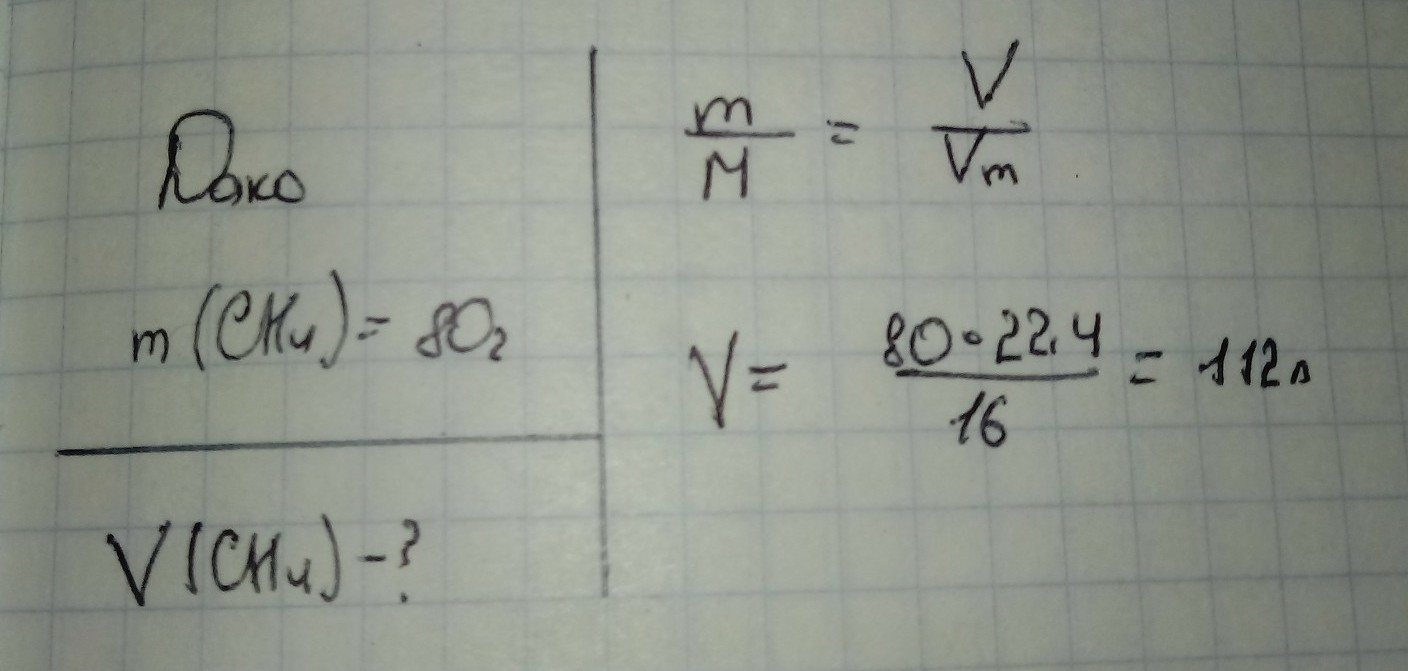 Дано
m(CH₄) = 80г
V(CH₄) - ?
m/M = V/Vm
V = 80•22,4/16 = 112л